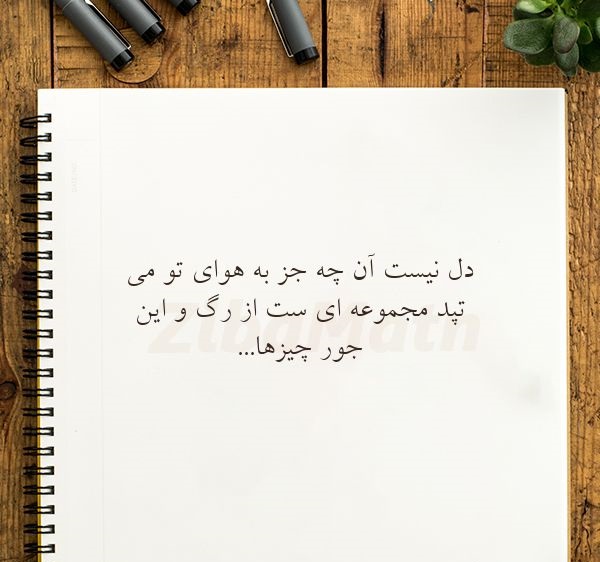 دل نیست آن چه جز به هوای تو می
تپد مجموعه ای ست از رگ و این
جور چیزها...
ZibaMatn